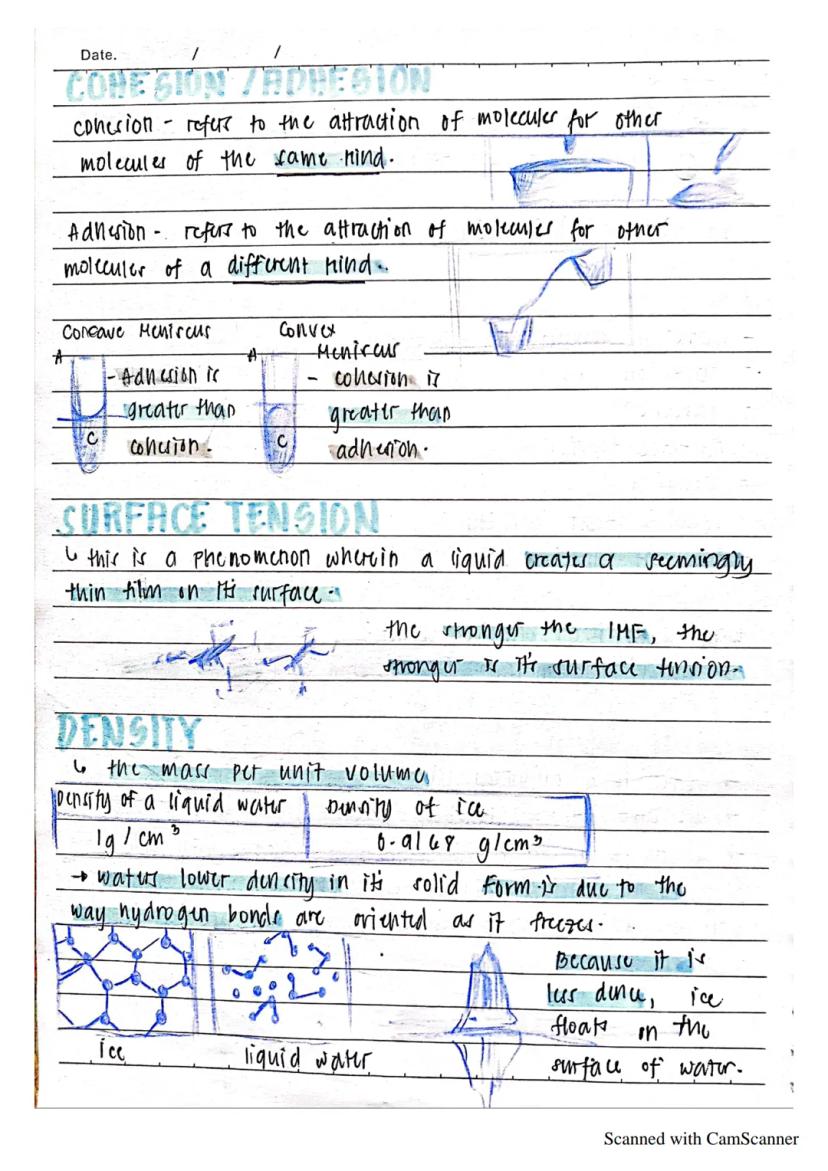 Date. / /
COHESION / ADHESION
cohesion - refers to the attraction of molecules for other
molecules of the same kind.
Adhesion - refers to the attraction of molecules for other
molecules of a different kind.
Concave Meniscus
A
- Adhesion is
greater than
cohesion.
C
Convex
Meniscus
A
- cohesion is
greater than
adhesion.
C
SURFACE TENSION
↳ this is a phenomenon wherein a liquid creates a seemingly
thin film on its surface.
the stronger the IMF, the
stronger is it's surface tension.
DENSITY
↳ the mass per unit volume
Density of a liquid water
Density of ice
1g/cm³
0.9168 g/cm³
→ waters lower density in its solid form is due to the
way hydrogen bonds are oriented as it freezes.
ice
liquid water
Because it is
less dence, ice
floats on the
surface of water.
Scanned with CamScanner